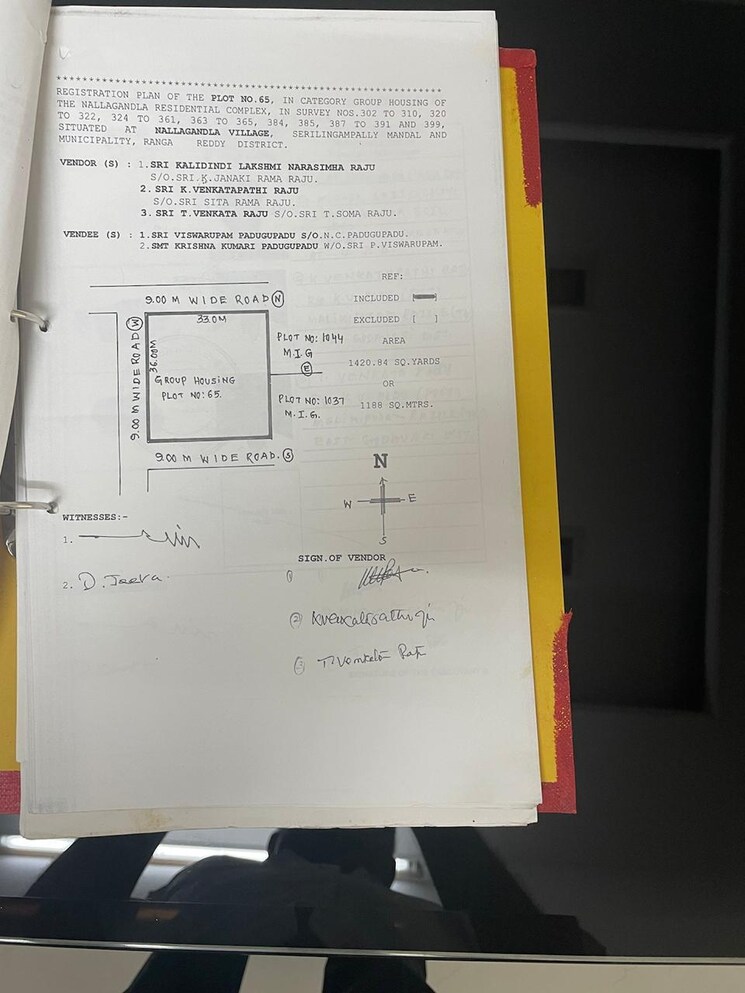 REGISTRATION PLAN OF THE PLOT NO.65, IN CATEGORY GROUP HOUSING OF
THE NALLAGANDLA RESIDENTIAL COMPLEX, IN SURVEY NOS.302 TO 310, 320
TO 322, 324 TO 361, 363 TO 365, 384, 385, 387 TO 391 AND 399,
SITUATED AT NALLAGANDLA VILLAGE, SERILINGAMPALLY MANDAL AND
MUNICIPALITY, RANGA REDDY DISTRICT.
VENDOR (S) : 1.SRI KALIDINDI LAKSHMI NARASIMHA RAJU
S/O.SRI.K.JANAKI RAMA RAJU.
2. SRI K.VENKATAPATHI RAJU
S/O.SRI SITA RAMA RAJU.
3. SRI T.VENKATA RAJU S/O.SRI T.SOMA RAJU.
VENDEE (S) : 1.SRI VISWARUPAM PADUGUPADU S/O.N.C.PADUGUPADU.
2.SMT KRISHNA KUMARI PADUGUPADU W/O.SRI P.VISWARUPAM.
REF:
INCLUDED [ ]
EXCLUDED [ ]
AREA
1420.84 SQ.YARDS
OR
1188 SQ.MTRS.
9.00 M WIDE ROAD N
33.0M
9.00 M WIDE ROAD W
36.00M
GROUP HOUSING
PLOT NO: 65.
PLOT NO: 1044
M.I.G
E
PLOT NO: 1037
M.I.G.
9.00 M WIDE ROAD. S
N
W E
S
WITNESSES:-
1.
2. D. Jeeva.
SIGN.OF VENDOR
1
2
3 T. Venkata Raju